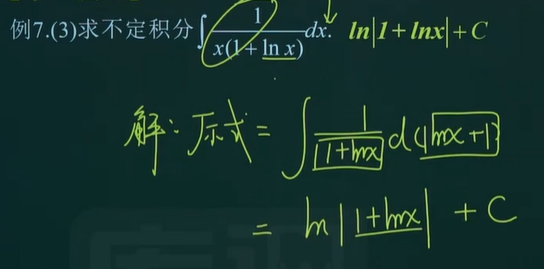 例7.(3)求不定积分∫ 1/(x(1+ln x)) dx. ln|1+lnx|+C
解:原式=∫ 1/(1+lnx) d(lnx+1)
= ln|1+lnx|+C